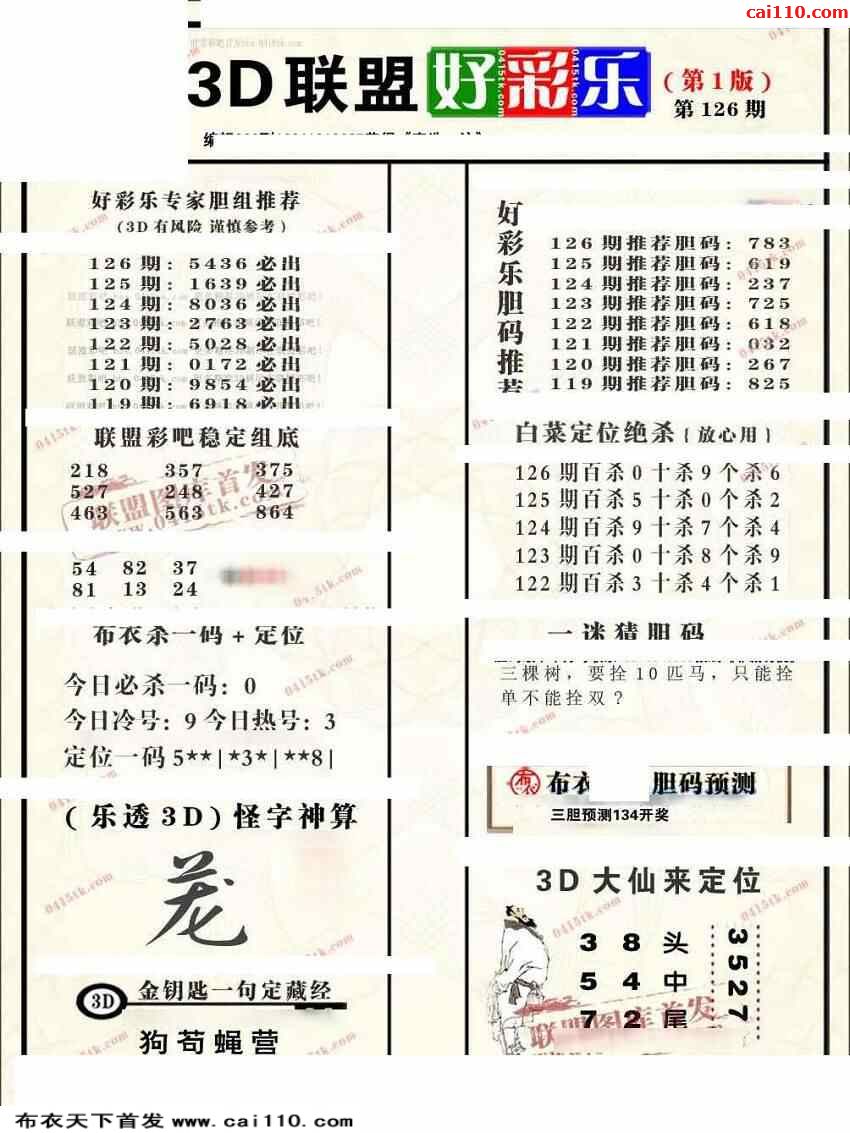 cai110.com
3D联盟好彩乐
(第1版)
第126期
好彩乐专家胆组推荐
(3D有风险 谨慎参考)
126期: 5436必出
125期: 1639必出
124期: 8036必出
123期: 2763必出
122期: 5028必出
121期: 0172必出
120期: 9854必出
119期: 6918必出
联盟彩吧稳定组底
218 357 375
527 248 427
463 563 864
54 82 37
81 13 24
布衣杀一码+定位
今日必杀一码: 0
今日冷号: 9 今日热号: 3
定位一码 5**|*3*|**8|
(乐透3D)怪字神算
3D 金钥匙一句定藏经
狗苟蝇营
好彩乐胆码推荐
126期推荐胆码: 783
125期推荐胆码: 619
124期推荐胆码: 237
123期推荐胆码: 725
122期推荐胆码: 618
121期推荐胆码: 032
120期推荐胆码: 267
119期推荐胆码: 825
白菜定位绝杀{放心用}
126期百杀0十杀9个杀6
125期百杀5十杀0个杀2
124期百杀9十杀7个杀4
123期百杀0十杀8个杀9
122期百杀3十杀4个杀1
一迷猜胆码
三棵树，要拴10匹马，只能拴
单不能拴双？
布衣 胆码预测
三胆预测134开奖
3D大仙来定位
3 8 头
5 4 中
7 2 尾
3527
联盟图库首发
www.0415tk.com
布衣天下首发 www.cai110.com